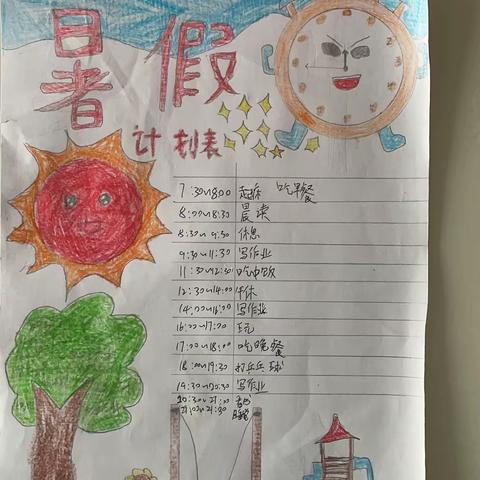 暑假
计划表
7:30~8:00 起床 吃早餐
8:00~8:30 晨读
8:30~9:30 休息
9:30~11:30 写作业
11:30~12:30 吃中饭
12:30~14:00 午休
14:00~16:00 写作业
16:00~17:00 玩
17:00~18:00 吃晚餐
18:00~19:30 打乒乓球
19:30~20:30 写作业
20:30~21:00
21:00~21:30 睡觉